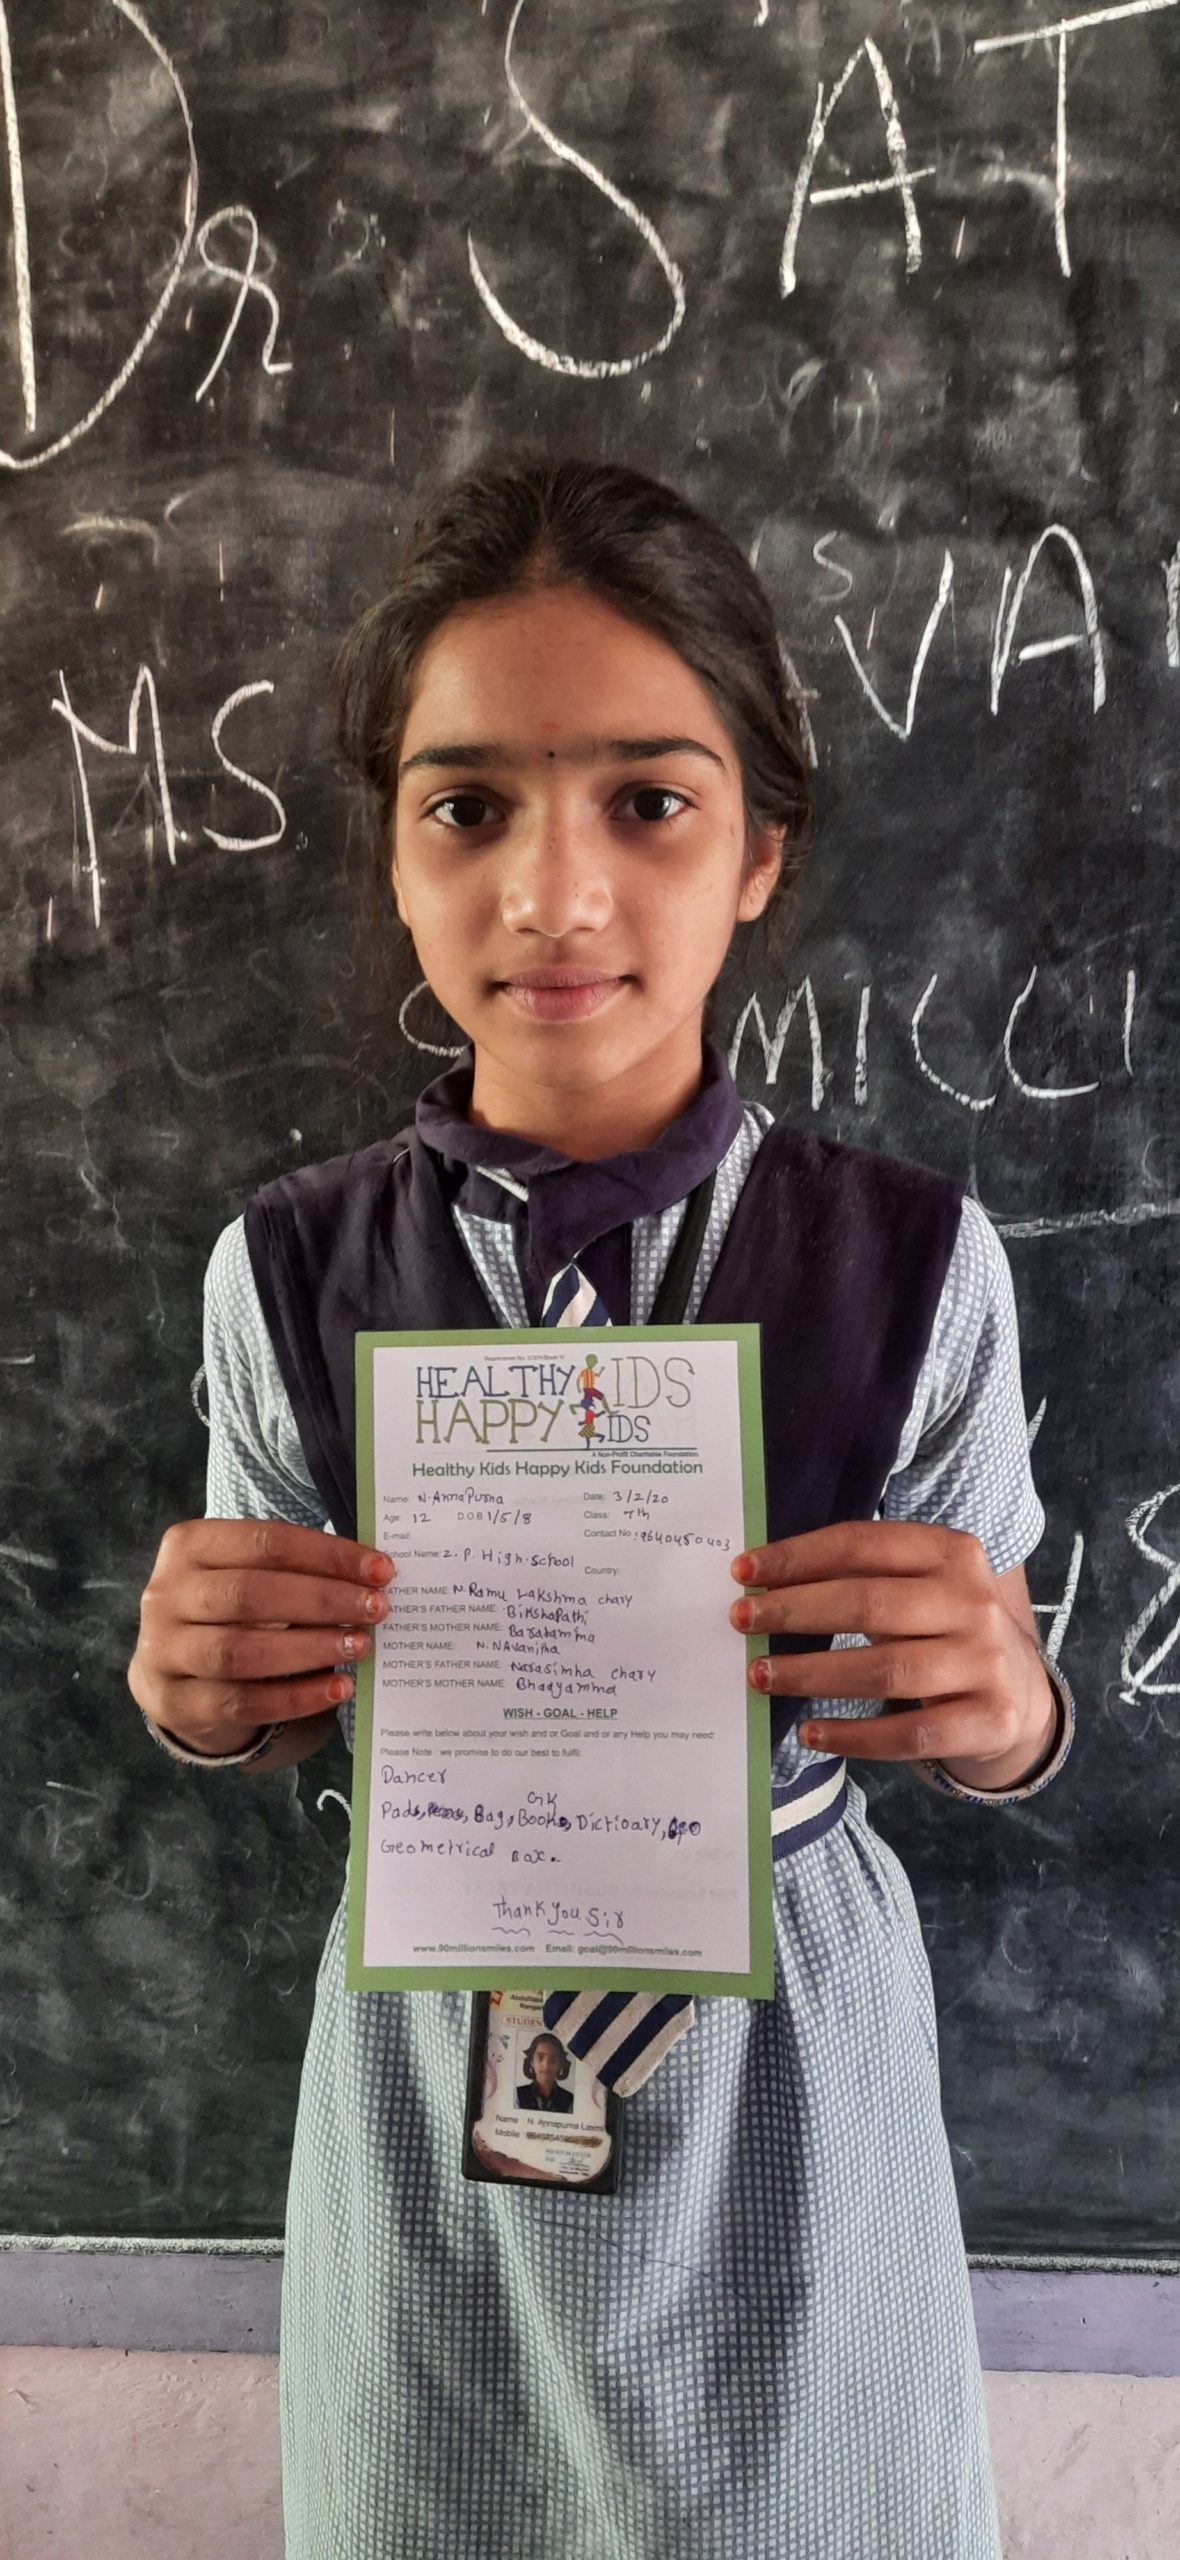 Dr SAT
S VA
MS
MICCI
HEALTHY KIDS
HAPPY KIDS
A Non-Profit Charitable Foundation
Healthy Kids Happy Kids Foundation
Name: N. AnnaPurna Date: 3/2/20
Age: 12 D.O.B 1/5/8 Class: 7th
E-mail: Contact No: 9640450403
School Name: Z. P. High. School Country:
FATHER NAME: N. Ramu Lakshma chary
FATHER'S FATHER NAME: Bikshapathi
FATHER'S MOTHER NAME: Baratamma
MOTHER NAME: N. NAvanitha
MOTHER'S FATHER NAME: Narasimha chary
MOTHER'S MOTHER NAME: Bhagyamma
WISH - GOAL - HELP
Please write below about your wish and or Goal and or any Help you may need
Please Note : we promise to do our best to fulfil:
Dancer
Pads, Bag, GK Books, Dictioary,
Geometrical Box.
Thank you Sir
www.90millionsmiles.com Email: goal@90millionsmiles.com
STUDEN
Name N. Annapurna Laxmi
Mobile